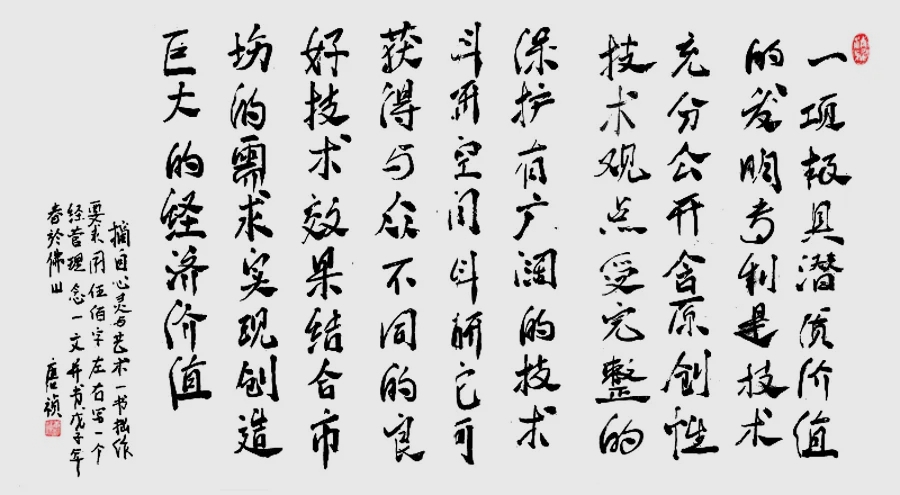 一项极具潜质价值
的发明专利是技术
充分公开含原创性
技术观点受完整的
保护有广阔的技术
斗研空间斗研它可
获得与众不同的良
好技术效果结合市
场的需求实现创造
巨大的经济价值
摘自心灵与艺术一书拙作
要求用伍佰字左右写一个
经营理念一文并肯戊子年
春於佛山
唐祯